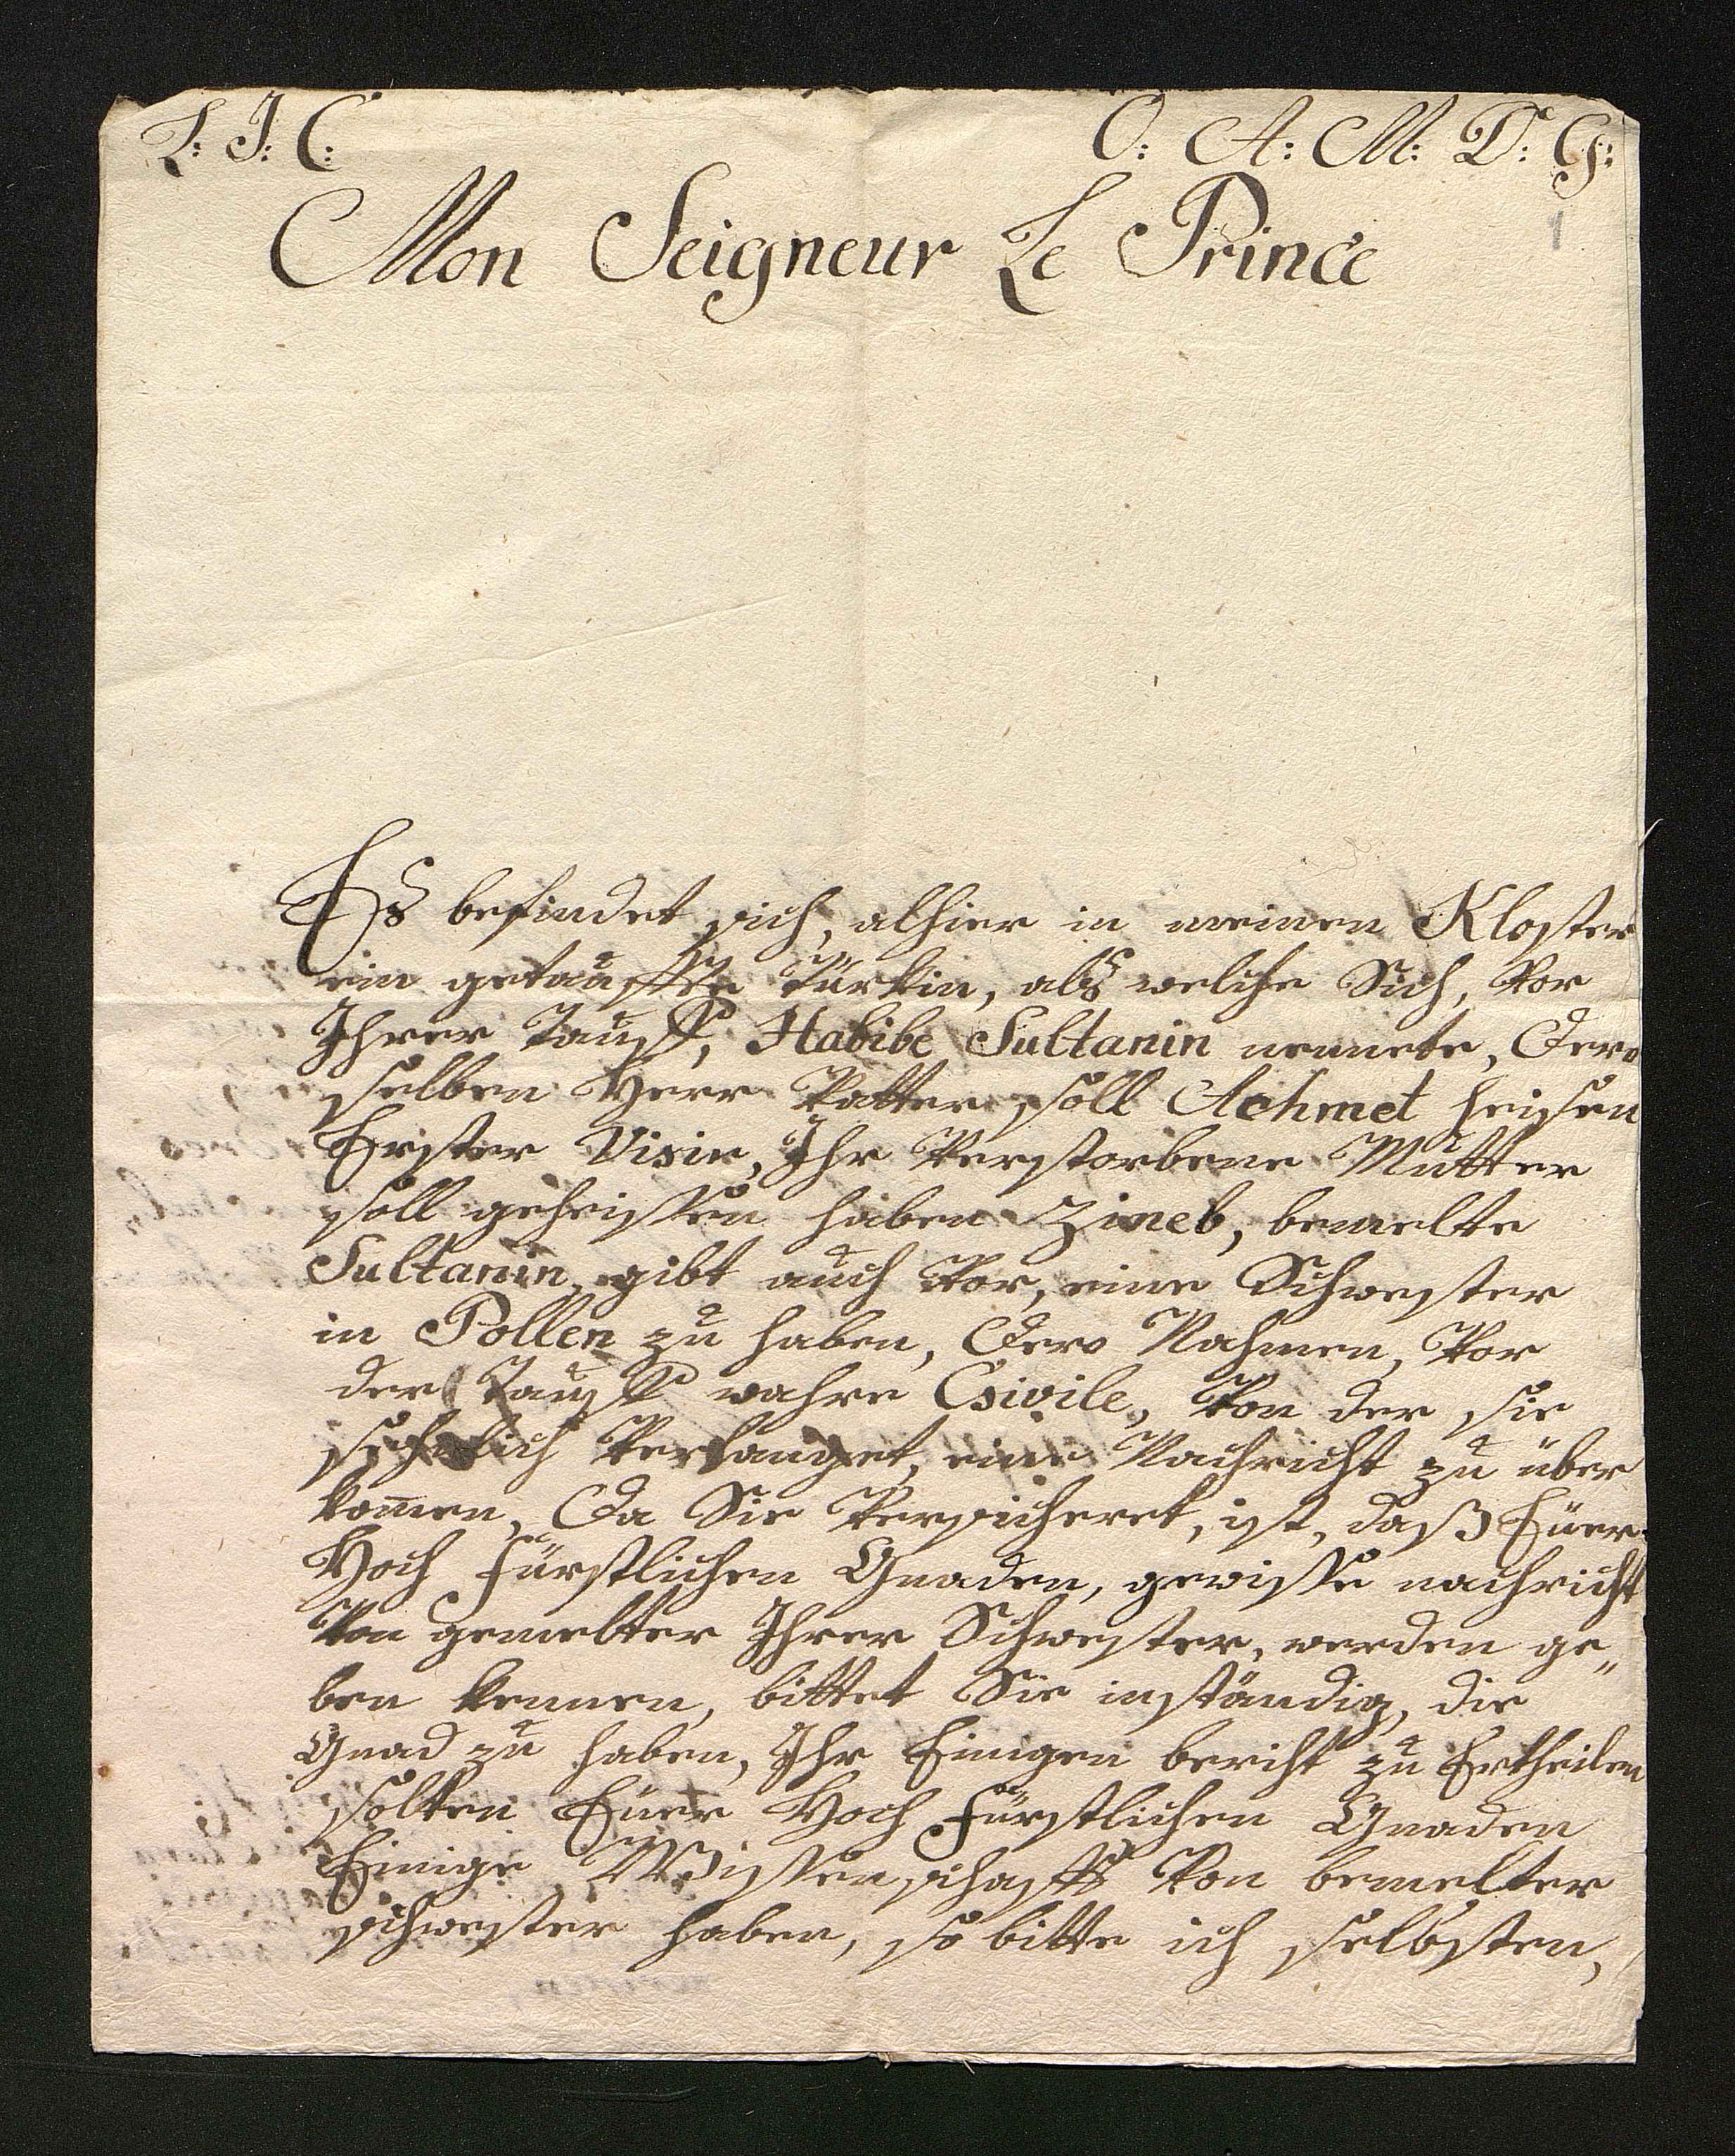 L: J: C: O: A: M: D: G:
1
Mon Seigneur Le Prince
Es befindet sich, alhier in meinen Kloster
ein getauffte Türkin, als welche Sich, Vor
Ihrer Tauff, Habibe Sultanin nennete, Dero
selben Herr Vatter soll Achmet heisen
Erster Visir, Ihr Verstorbene Mutter
soll geheissen haben Zineb, bemelte
Sultanin, gibt auch Vor, eine Schwester
in Pollen zu haben, Dero Nahmen, Vor
der Tauff wahre Csivile, Von der sie
sehnlich Verlanget, eine Nachricht zu über
kom̄en, Da Sie Versicheret, ist, daß Euer
Hoch Fürstlichen Gnaden, gewisse nachricht
Von gemelter Ihrer Schwester, werden ge„
ben kennen, bittet Sie inständig, die
Gnad zu haben, Ihr Einigen bericht zu Ertheilen
solten Euer Hoch Fürstlichen Gnaden
Einige Wissenschafft Von bemelter
schwester haben, so bitte ich selbsten,